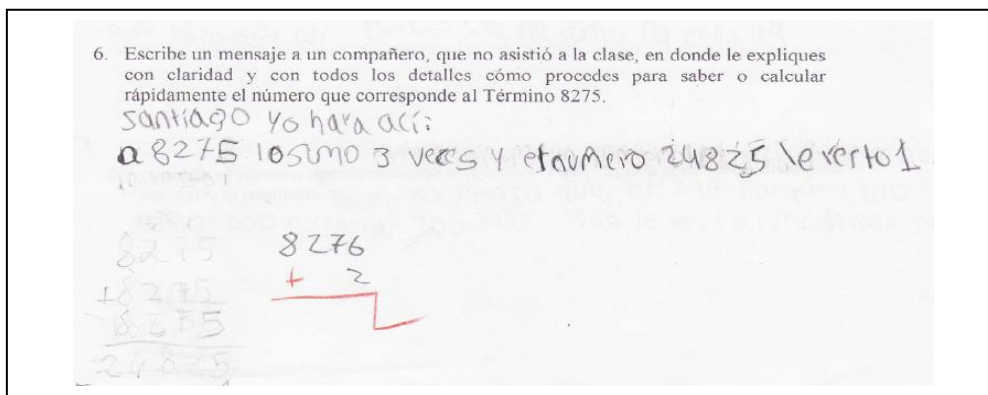 6. Escribe un mensaje a un compañero, que no asistió a la clase, en donde le expliques
con claridad y con todos los detalles cómo procedes para saber o calcular
rápidamente el número que corresponde al Término 8275.
santiago yo hara aci:
a 8275 losumo 3 veces y etnumero 24825 le rerto 1
8275
+8275
8275
24825
8276
+ 2